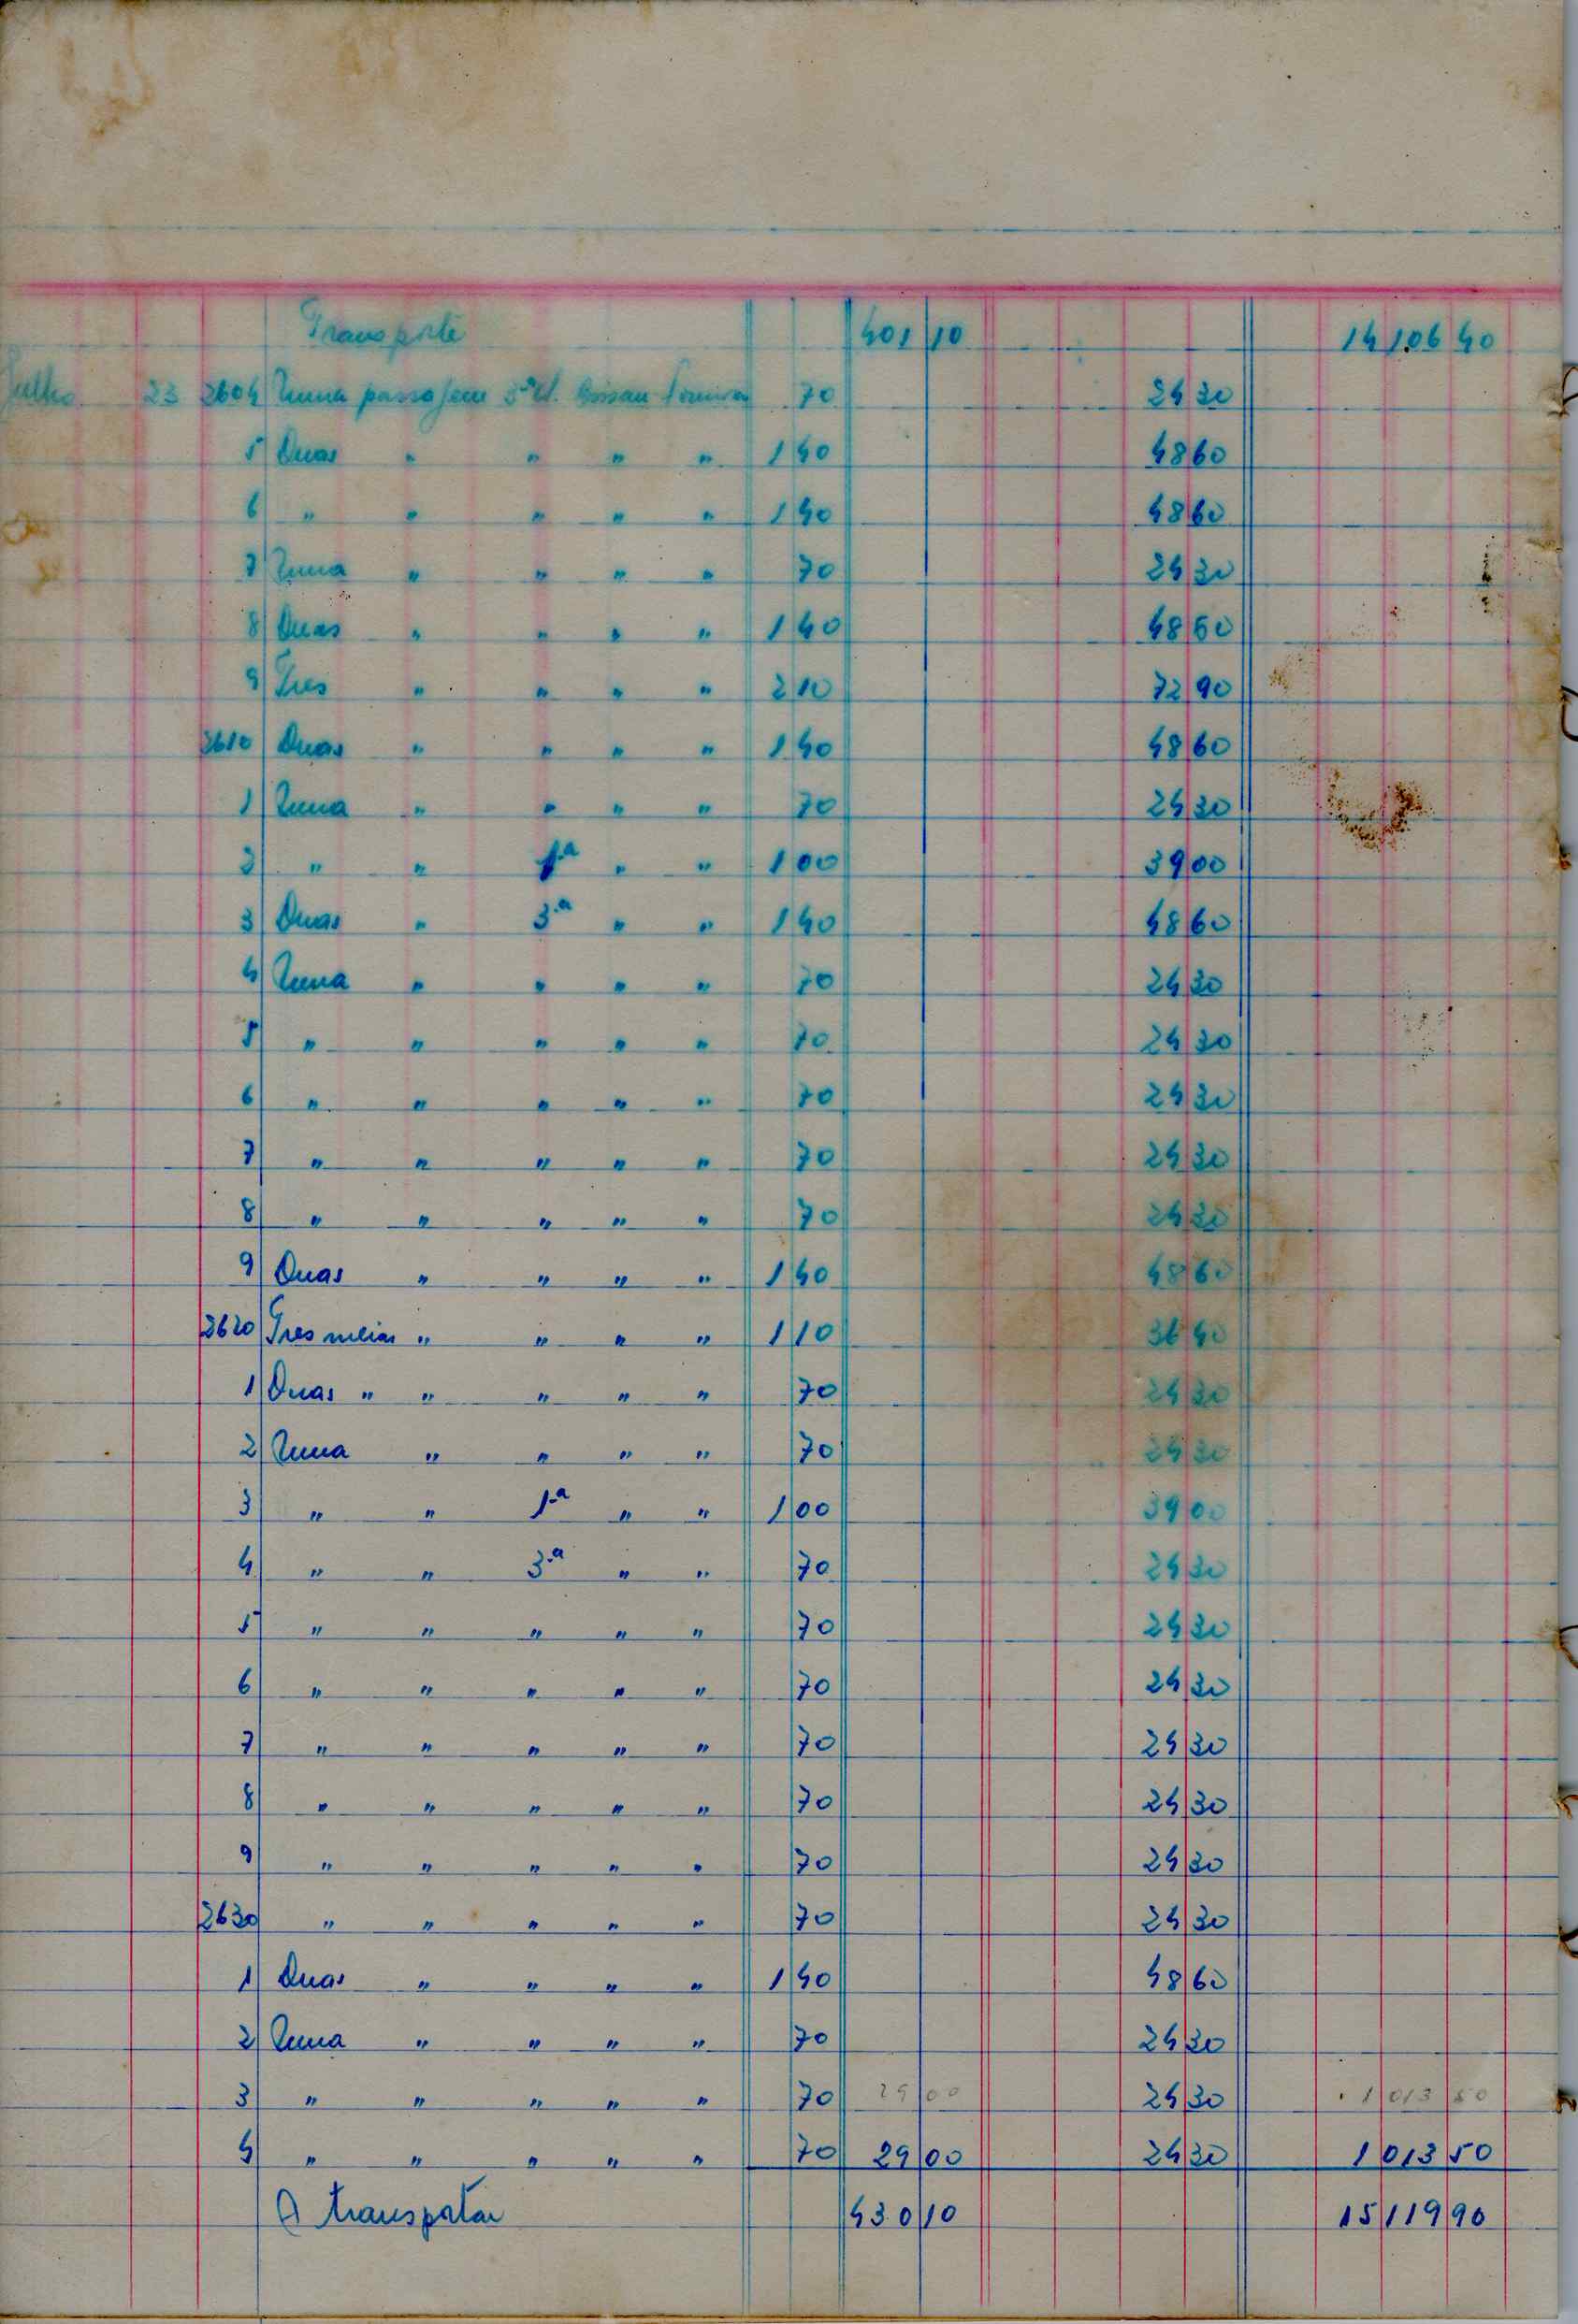 Transporte 401 10 14 106 40
Julho 23 2604 Uma passajem 3.ª cl. Bissau 70 24 30
5 Duas " " " " 1 40 48 60
6 " " " " " 1 40 48 60
7 Uma " " " " 70 24 30
8 Duas " " " " 1 40 48 60
9 Tres " " " " 2 10 72 90
2610 Duas " " " " 1 40 48 60
1 Uma " " " " 70 24 30
2 " " 1.ª " " 1 00 39 00
3 Duas " 3.ª " " 1 40 48 60
4 Uma " " " " 70 24 30
5 " " " " " 70 24 30
6 " " " " " 70 24 30
7 " " " " " 70 24 30
8 " " " " " 70 24 30
9 Duas " " " " 1 40 48 60
2620 Tres meias " " " " 1 10 36 40
1 Duas " " " " " 70 24 30
2 Uma " " " " 70 24 30
3 " " 1.ª " " 1 00 39 00
4 " " 3.ª " " 70 24 30
5 " " " " " 70 24 30
6 " " " " " 70 24 30
7 " " " " " 70 24 30
8 " " " " " 70 24 30
9 " " " " " 70 24 30
2630 " " " " " 70 24 30
1 Duas " " " " 1 40 48 60
2 Uma " " " " 70 24 30
3 " " " " " 70 29 00 24 30 1 013 50
4 " " " " " 70 29 00 24 30 1 013 50
A transportar 430 10 15 119 90